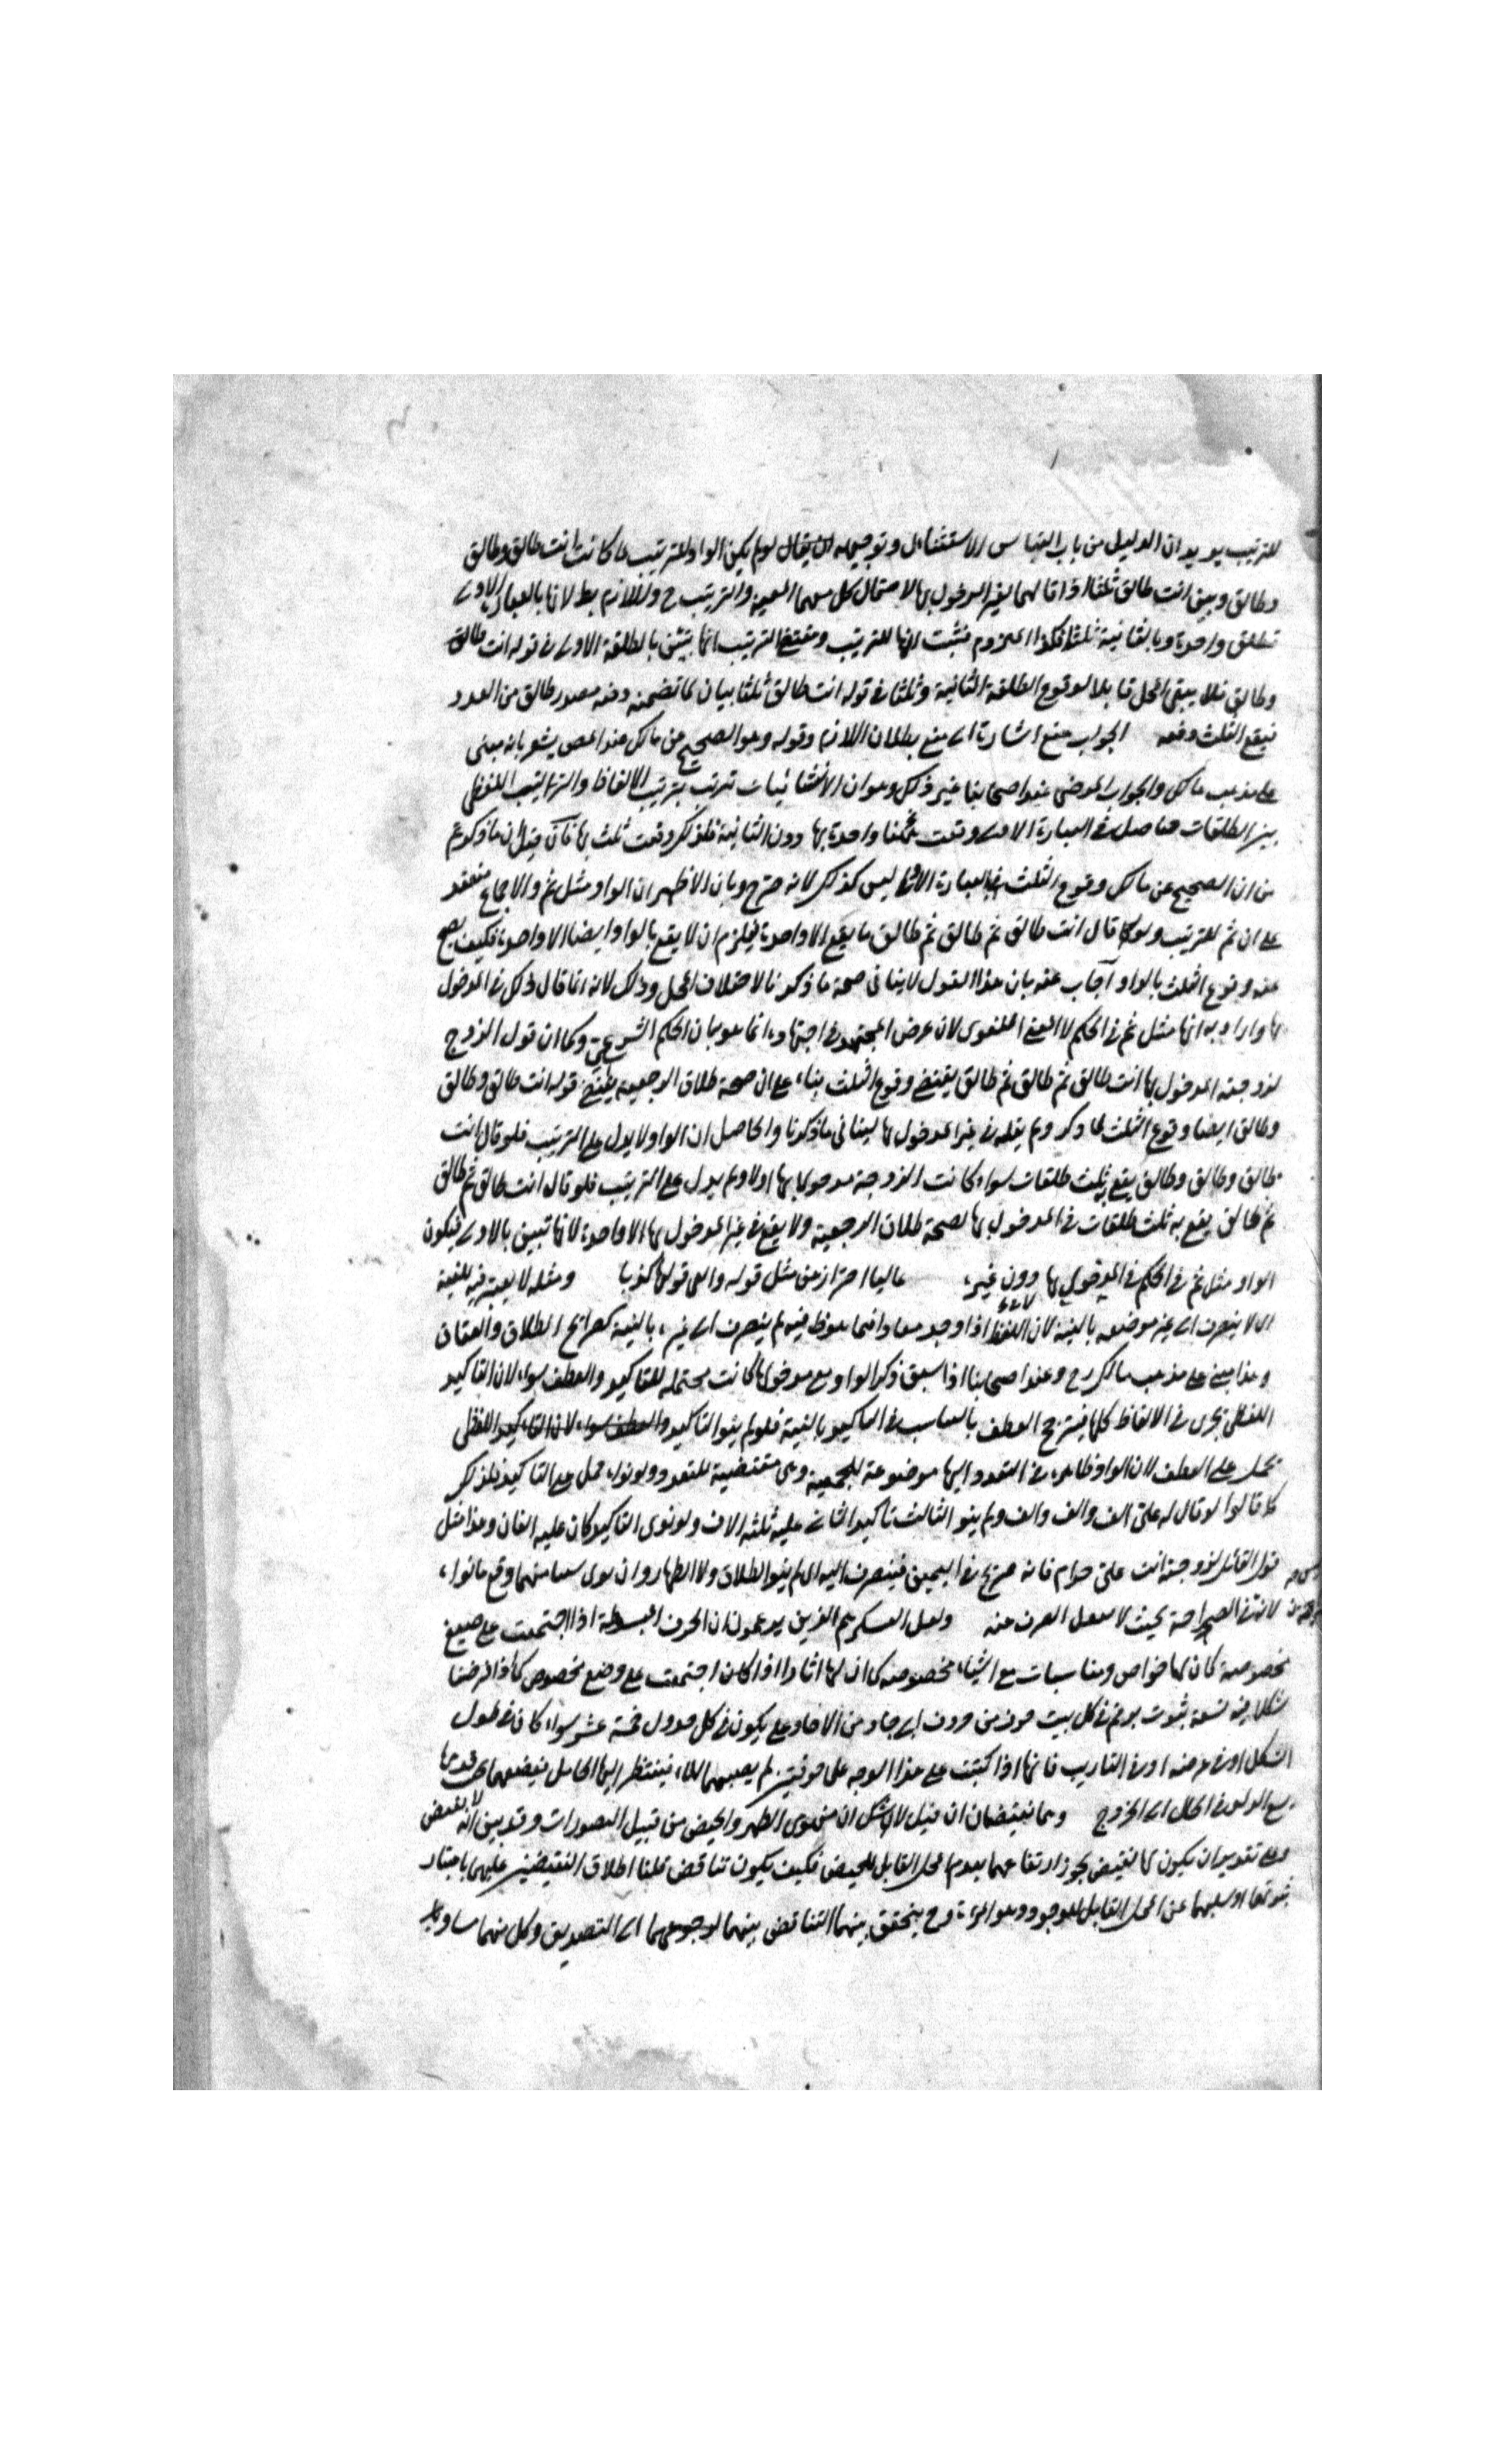 للترتيب يريد ان الدليل من باب القياس الاستثنائى وتوجيهه ان يقال لو لم يكن الواو للترتيب لما كانت انت طالق وطالق
وطالق وبين انت طالق ثلثا اذا قالهما لغير المدخول بها لاحتمال كل منهما المعية والترتيب ح واللازم بط لانها بالعبارة الاولى
تطلق واحدة وبالثانية ثلثا فكذا الملزوم فثبت انها للترتيب ومقتضى الترتيب انها تبين بالطلقة الاولى فى قوله انت طالق
وطالق فلا يبقى المحل قابلا لوقوع الطلقة الثانية وثلثا فى قوله انت طالق ثلثا بيان لما تضمنه مصدر طالق من العدد
فيقع الثلث دفعه الجواب منع اشارة الى منع بطلان اللازم وقوله وهو الصحيح عن مالك عند المص يشعر بانه مبنى
على مذهب مالك والجواب المرضى عند اصحابنا غير ذلك وهو ان الانشائيات تترتب بترتيب الالفاظ والترتيب اللفظى
بين الطلقات حاصل فى العبارة الاولى وقعت واحدة بها دون الثانية فلذلك وقعت ثلث بها فان قيل ان ما ذكرتم
من ان الصحيح عن مالك وقوع الثلث بالعبارة ليس كذلك لانه صرح وبان الاظهر ان الواو مثل ثم والاجماع منعقد
على ان ثم للترتيب ولو قال انت طالق ثم طالق ثم طالق ما يقع الا واحدة فيلزم ان لا يقع بالواو ايضا الا واحدة فكيف يصح
عنه وقوع الثلث بالواو اجاب عنه بان هذا القول لا ينافى صحة ما ذكرنا لاختلاف المحل وذلك لانه انما قال ذلك فى المدخول
بها واراد به انها مثل ثم فى الحكم لا المعنى اللغوى لان غرض المجتهد فى اجتهاده انما هو بيان الحكم الشرعى وكما ان قول الزوج
لزوجته المدخول بها انت طالق ثم طالق ثم طالق يقتضى وقوع الثلث بناء على ان صحة طلاق الرجعية يقتضى قوله انت طالق وطالق
وطالق ايضا وقوع الثلث لما ذكر ولم يقله فى غير المدخول بها لينافى ما ذكرنا والحاصل ان الواو لا يدل على الترتيب فلو قال انت
طالق وطالق وطالق يقع ثلث طلقات سواء كانت الزوجة مدخولا بها اولا وثم يدل على الترتيب فلو قال انت طالق ثم طالق
ثم طالق يقع به ثلث طلقات فى المدخول بها لصحة طلاق الرجعية ولا يقع فى غير المدخول بها الا واحدة لانها تبين بالاولى فيكون
الواو مثل ثم فى الحكم فى المدخول بها دون غيره غالبا احتراز عن مثل قوله كذبا ومثله لا يعتبر فيه النية
اى لا ينصرف الى غير موضوعه بالنية لان اللفظ اذا وجد نفاذا فيما وضع فيه لم ينصرف الى غيره بالنية كصرائح الطلاق والعتاق
وهذا مبنى على مذهب مالك رح وعند اصحابنا اذا سبق ذكر الواو مع مدخولها كانت محتملة للتاكيد والعطف سواء لان التاكيد
اللفظى تجرى فى الالفاظ كلها فيترجح العطف فى التاكيد بالنية فلو لم ينو التاكيد والعطف سواء لان التاكيد اللفظى
تحمل على العطف لان الواو ظاهرة فى التعدد موضوعة للجمعية وهى مقتضية للتعدد ولو نواه حمل على التاكيد فلذلك
قالوا لو قال له على الف والف والف ولم ينو الثالث تاكيد الثانى عليه ثلثة الاف ولو نوى التاكيد كان عليه الفان وهذا مثل
قول القائل لزوجته انت على حرام فانه صريح فى اليمين فينصرف اليه ان لم ينو الطلاق ولا الظهار وان نوى شيئا منهما وقع ما نواه
لانه فى الصراحة بحيث لا الصرف عنه ولعل العسكرى هم الذين يدعون ان الحرف المبسوطة اذا اجتمعت على صيغ
مخصوصة كان لها خواص ومناسبات مع اشياء مخصوصة كما ان لها اثارا اذا كان اجتمعت على وضع مخصوص كما اذا فرضنا
شكلا فيه تسعة بيوت يرقم فى كل بيت حرف من حروف ابجاد من الاحاد على يكون فى كل جدول خمسة عشر سواء كان فى طول
الشكل او فى عرضه او فى التأريب فانها اذا كتبت على هذا الوجه على خزفتين لم يصبهما الماء فينظر اليها الحامل فيضعهما تحت قدميها
يسرع الولد فى الحال الى الخروج وهما نقيضان ان قيل لا شك ان مفهومى الطهر والحيض من قبيل التصورات وقد بين انه لا نقيض
وعلى تقدير ان يكون لها نقيض يجوز ارتفاعهما بعدم المحل القابل للحيض فكيف يكون تناقض قلنا اطلاق النقيضين عليهما باعتبار
ثبوتهما او سلبهما عن المحل القابل الموجود وهو المرأة وح يتحقق بينهما التناقض لرجوعهما الى التصديق وكل منهما مساو